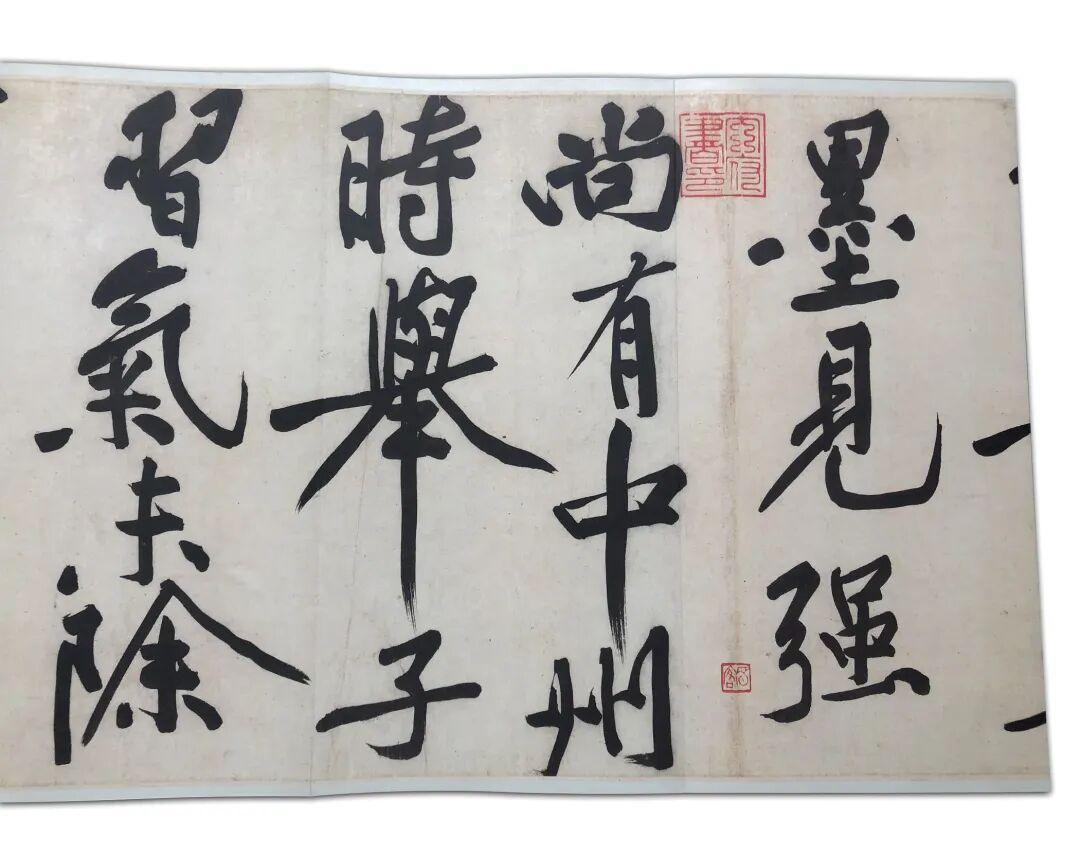 墨見强
尚有中州
時舉子
習氣未除